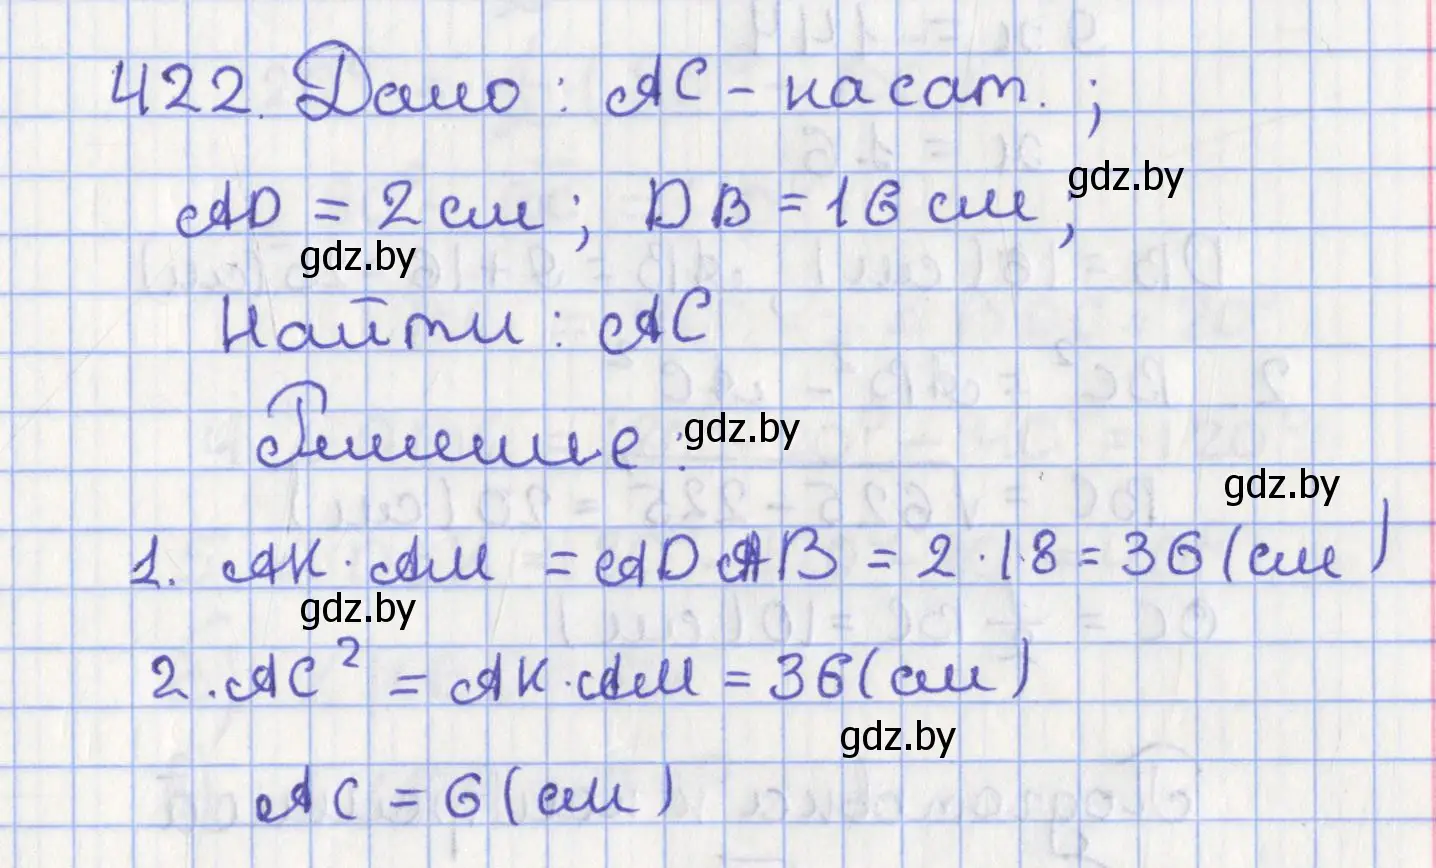 422. Дано : AC - касат. ;
gdz.by
AD = 2 см ; DB = 16 см ;
gdz.by
Найти : AC
Решение :
gdz.by
gdz.by
1. AK · AM = AD AB = 2 · 18 = 36 (см)
gdz.by
2. AC² = AK · AM = 36 (см)
gdz.by
AC = 6 (см)